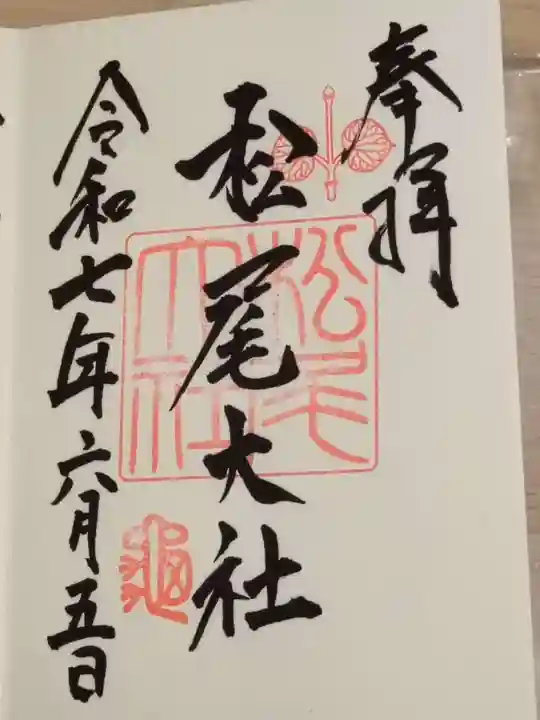 奉拝
松尾大社
松尾大社
令和七年六月五日